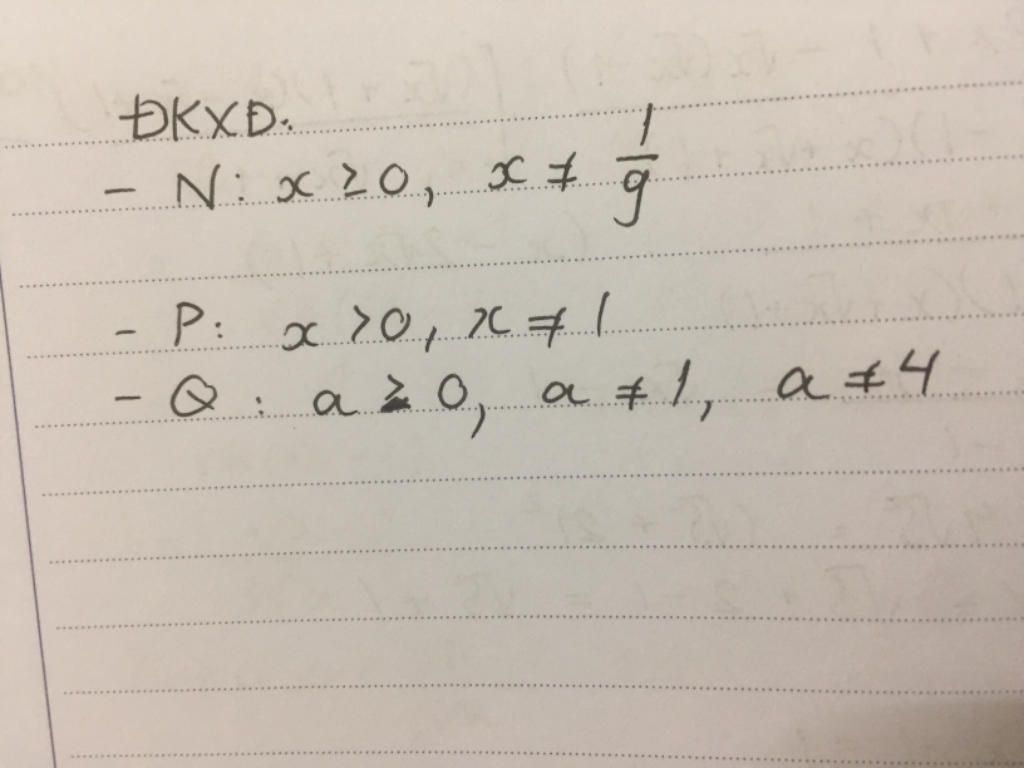 ĐKXĐ:
- N: x ≥ 0, x ≠ 1/9
- P: x > 0, x ≠ 1
- Q: a ≥ 0, a ≠ 1, a ≠ 4